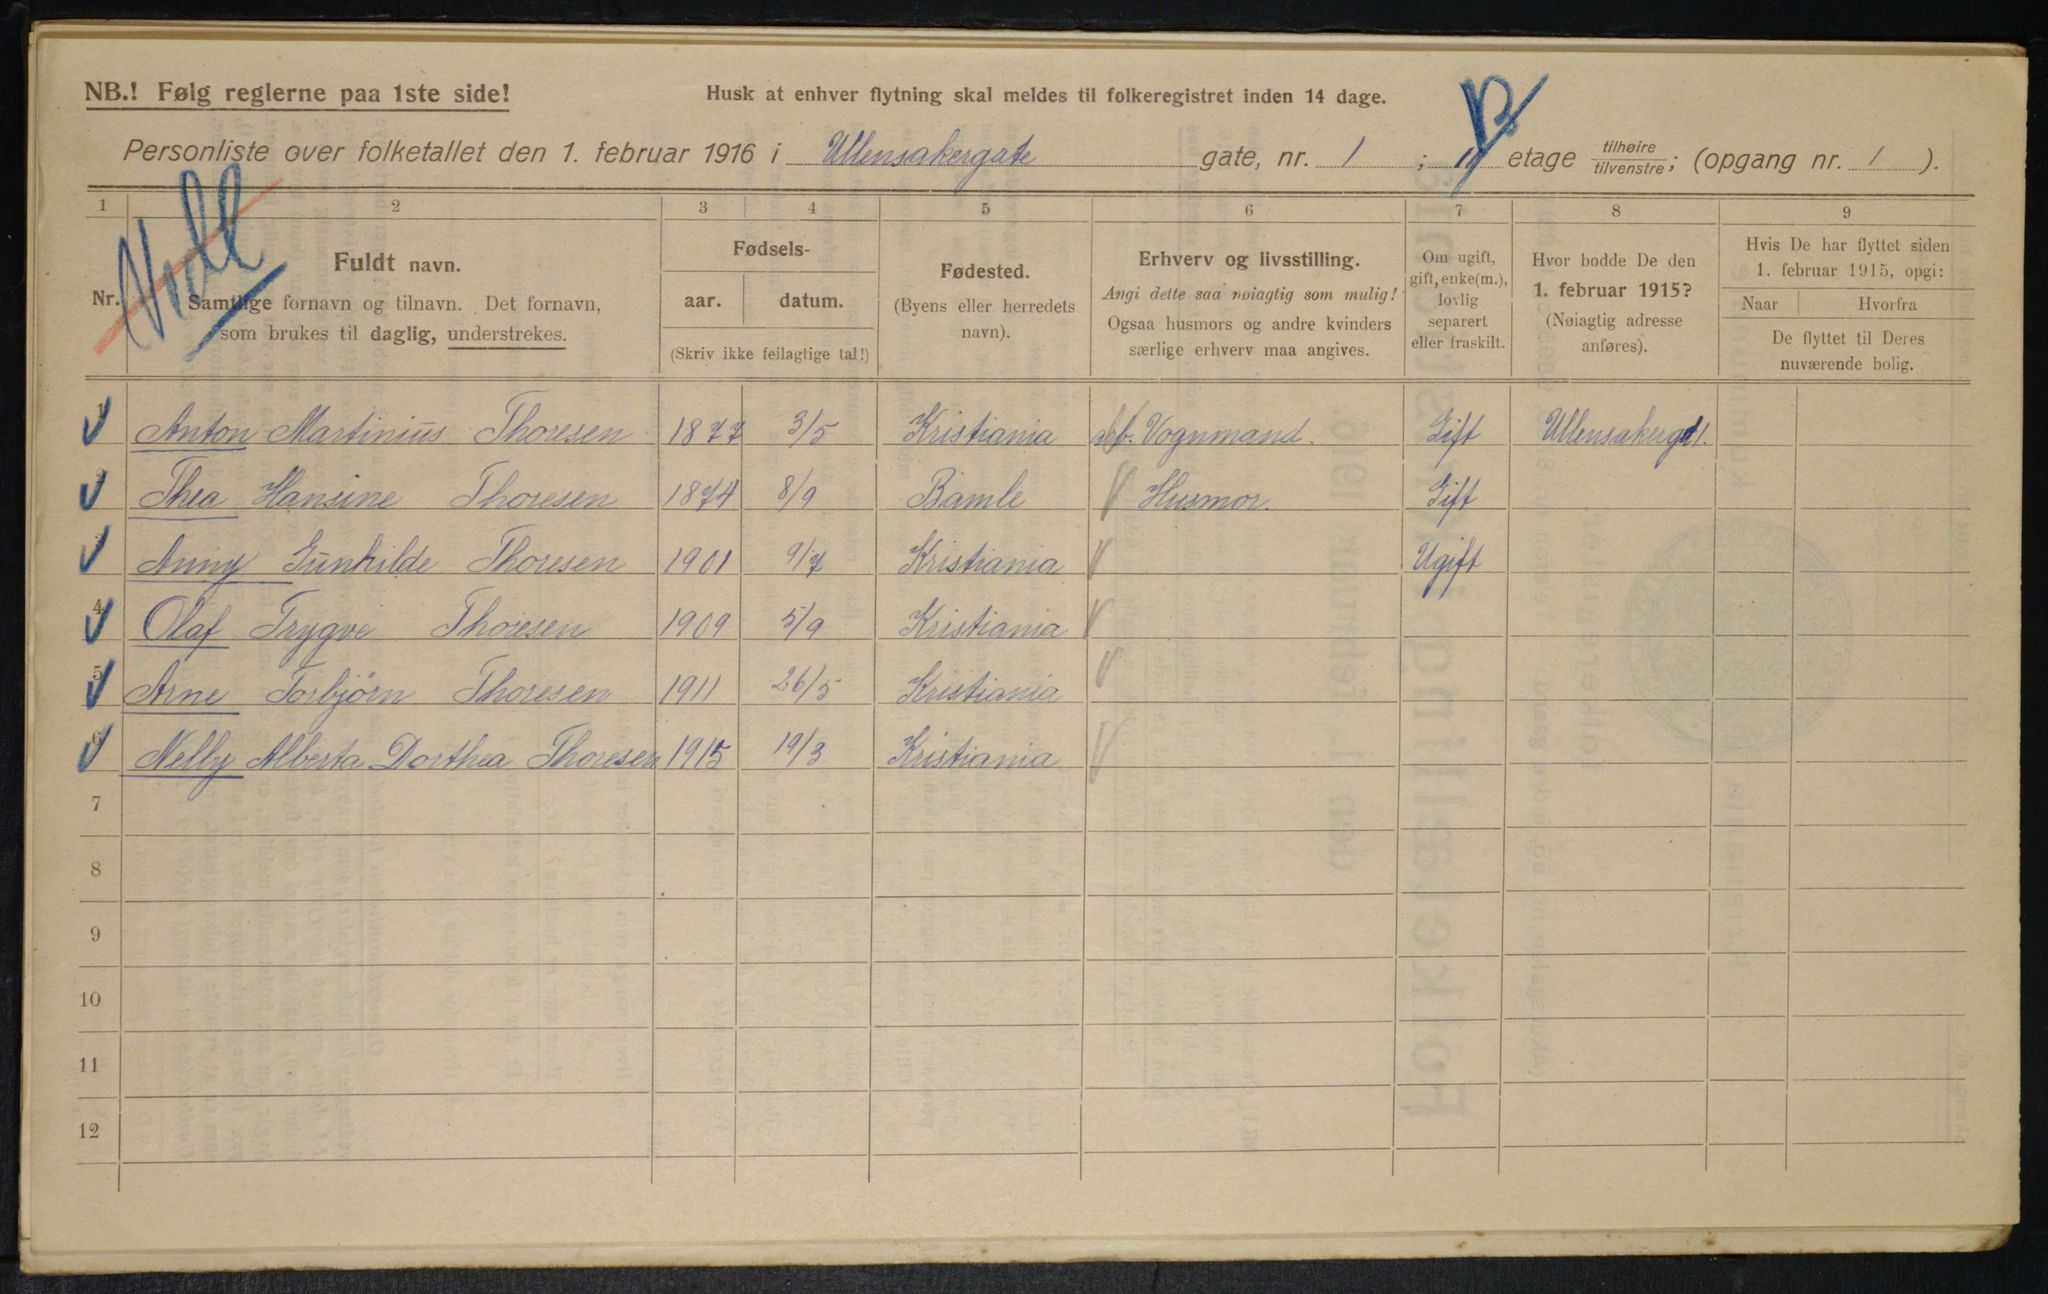 NB.! Følg reglerne paa 1ste side!
Husk at enhver flytning skal meldes til folkeregistret inden 14 dage.
Personliste over folketallet den 1. februar 1916 i Ullensakergate gate, nr. 1 ; etage tilhøire/tilvenstre; (opgang nr. 1 ).
1 2 3 4 5 6 7 8 9
Nr. Fuldt navn. Samtlige fornavn og tilnavn. Det fornavn, som brukes til daglig, understrekes.
Fødsels- aar. datum. (Skriv ikke feilagtige tal!)
Fødested. (Byens eller herredets navn).
Erhverv og livsstilling. Angi dette saa nøiagtig som mulig! Ogsaa husmors og andre kvinders særlige erhverv maa angives.
Om ugift, gift, enke(m.), lovlig separert eller fraskilt.
Hvor bodde De den 1. februar 1915? (Nøiagtig adresse anføres).
Hvis De har flyttet siden 1. februar 1915, opgi: Naar Hvorfra De flyttet til Deres nuværende bolig.
1 Anton Martinius Thoresen 1877 3/5 Kristiania Vognmand. Gift Ullensakergt 1.
2 Thea Hansine Thoresen 1874 8/9 Bamle Husmor. Gift
3 Anny Gunhilde Thoresen 1901 9/7 Kristiania Ugift
4 Olaf Trygve Thoresen 1909 5/9 Kristiania
5 Arne Torbjørn Thoresen 1911 26/5 Kristiania
6 Nelly Alberta Dorthea Thoresen 1915 19/3 Kristiania
7
8
9
10
11
12